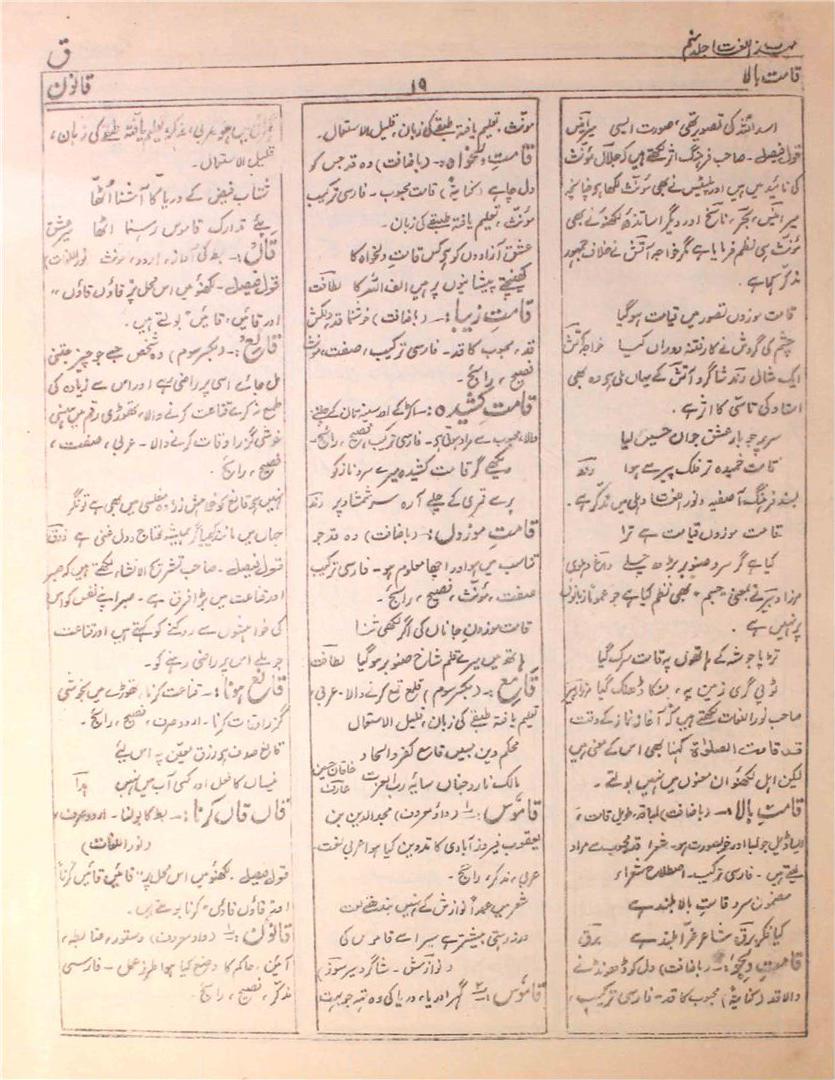 مہذب اللغت جلد نہم
ق
قامت بالا
۱۹
قانون
اسد اللہ کی تصویر تھی، صورت ایسی میر انیس
قول فیصل۔ صاحب فرہنگ اثر لکھتے ہیں کہ جلال مؤنث
کی تائید میں ہیں اور پلیٹس نے بھی مؤنث لکھا ہے چنانچہ
میر انیس، بحر، ناسخ اور دیگر اساتذۂ لکھنؤ نے بھی
مؤنث ہی نظم فرمایا ہے مگر خواجہ آتش نے خلاف جمہور
مذکر کہا ہے۔
قامت موزوں تصور میں قیامت ہوگیا
چشم کی گردش نے کار فتنۂ دوراں کیا خواجہ آتش
ایک مثال رند شاگرد آتش کے یہاں ملی ہے وہ بھی
استاد کی تاسّی کا اثر ہے۔
سر پہ جو بار عشق جواں حسیں لیا
قامت خمیدہ تر فلک پیر سے ہوا رند
بسند فرہنگ آصفیہ و نور اللغت دہلی میں مذکر ہے۔
قامت موزوں قیامت ہے ترا
کیا ہے گر سرو صنوبر بڑھ چلے داغ دہلوی
مرزا دبیر نے بمعنی "جسم" بھی نظم کیا ہے جو عموماً زبانوں
پر نہیں ہے۔
تڑپا جو شہ کے ہاتھوں پہ قامت سرک گیا
ٹوپی گری زمین پہ، منکا ڈھلک گیا مرزا دبیر
صاحب نور اللغات لکھتے ہیں کہ آغاز نماز کے وقت
قد قامت الصلوٰۃ کہنا بھی اس کے معنی ہیں
لیکن اہل لکھنؤ ان معنوں میں نہیں بولتے۔
قامتِ بالا :۔ (باضافت) لمبا قد، طویل قامت،
ایسا ڈیل جو لمبا اور خوبصورت ہو۔ شعرا قد محبوب سے مراد
لیتے ہیں۔ فارسی ترکیب۔ اصطلاح شعراء
مضمون سرو قامتِ بالا بلند ہے
کیا فکر برق شاعر غرا بلند ہے برق
قامتِ دلجو :۔ (باضافت) دل کو ڈھونڈنے
والا قد (کنایۃً) محبوب کا قد۔ فارسی ترکیب،
مؤنث، تعلیم یافتہ طبقے کی زبان، قلیل الاستعمال۔
قامتِ دلخواہ :۔ (باضافت) وہ قد جس کو
دل چاہے (کنایۃً) قامت محبوب۔ فارسی ترکیب
مؤنث، تعلیم یافتہ طبقے کی زبان۔
عشق آزادوں کو ہے کس قامتِ دلخواہ کا
کھینچتے پیشانیوں پر ہیں الف اللہ کا لطافت
قامتِ زیبا :۔ (باضافت) خوشنما قد، دلکش
قد، محبوب کا قد۔ فارسی ترکیب، صفت، مؤنث
فصیح، رائج۔
قامت کشیدہ :۔ اکڑ کے اور سینہ تان کے چلنے
والا، محبوب سے مراد ہوتی ہے۔ فارسی ترکیب، فصیح، رائج۔
دیکھے گر قامت کشیدہ میرے سرو ناز کو
پر سے قمری کے چلے آرہ سر شمشاد پر رند
قامتِ موزوں :۔ (باضافت) وہ قد جو
تناسب میں ہو اور اچھا معلوم ہو۔ فارسی ترکیب
صفت، مؤنث، فصیح، رائج۔
قامت موزوں جاناں کی اگر لکھی ثنا
ہاتھ میں میرے قلم شاخ صنوبر ہوگیا لطافت
قامع :۔ (بکسر سوم) قلع قمع کرنے والا۔ عربی،
تعلیم یافتہ طبقے کی زبان، قلیل الاستعمال
محکم دین مبیں قامع کفر و الحاد
مالک نار و جناں سایۂ رب العزت خاقان حسین عارف
قاموس :۔ ۱ (واو معروف) مجد الدین بن
یعقوب فیروز آبادی کا تدوین کیا ہوا عربی لغت۔
عربی، مذکر، رائج۔
شعر میں عمداً نوازش کے نہیں بندھتے لغت
ورنہ دستی بیشتر ہے میر اے قاموس کی
(نوازش۔ شاگرد میر سوز)
قاموس :۔ ۲ گہرا دریا، دریا کی وہ تہہ جو بہت
گہرائی میں ہو۔ عربی، مذکر، تعلیم یافتہ طبقے کی زبان،
قلیل الاستعمال۔
شتاب فیض کے دریا کا آشنا اٹھا
پئے تدارک قاموس رہنما اٹھا میر عشق
قاں :۔ بط کی آواز، اردو، مؤنث (نور اللغات)
قول فیصل۔ لکھنؤ میں اس محل پر قاؤں قاؤں"
اور قائیں، قائیں" بولتے ہیں۔
قانع :۔ (بکسر سوم) وہ شخص جسے جو چیز جتنی
مل جائے اسی پر راضی رہے اور اس سے زیادہ کی
طمع نہ کرے، قناعت کرنے والا، تھوڑی رقم میں ہنسی
خوشی گزر اوقات کرنے والا۔ عربی، صفت،
فصیح، رائج۔
نہیں ہے قانع کو خواہش زر وہ مفلسی میں بھی ہے تونگر
جہاں میں مانند کیمیا گر ہمیشہ محتاج و دل غنی ہے ذوق
قول فیصل۔ صاحب تشریح الانشاء لکھتے ہیں کہ صبر
اور قناعت میں بڑا فرق ہے۔ صبر اپنے نفس کو اس
کی خواہشوں سے روکنے کو کہتے ہیں اور قناعت
جو ملے اس پر راضی رہنے کو۔
قانع ہونا :۔ قناعت کرنا، تھوڑے میں بخوشی
گزر اوقات کرنا۔ اردو صرف، فصیح، رائج۔
قانع صدف ہے رزق معین پہ اس لئے
نیساں کا فضل اور کسی آب میں نہیں
قاں قاں کرنا :۔ بط کا بولنا۔ اردو صرف،
(نور اللغات)
قول فیصل۔ لکھنؤ میں اس محل پر "قائیں قائیں کرنا"
اور قاؤں قاؤں" کرنا بولتے ہیں۔
قانون :۔ ۱ (واو معروف) دستور، ضابطہ،
آئین، حاکم کا وضع کیا ہوا طرز عمل۔ فارسی
مذکر، فصیح، رائج۔